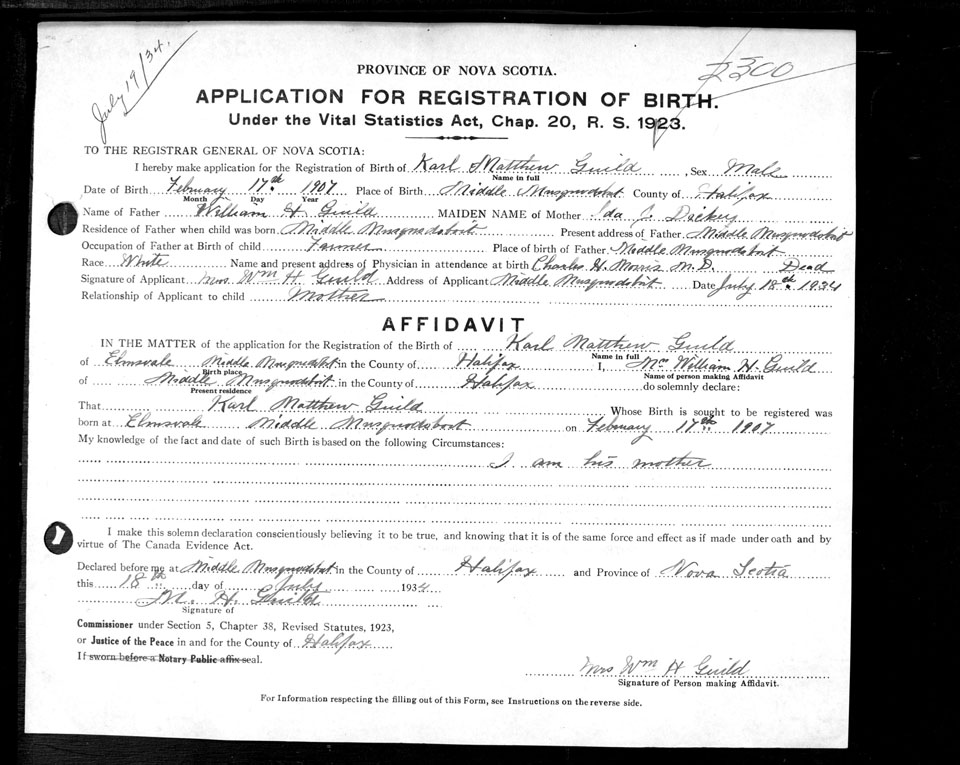 July 19/34.
2300
PROVINCE OF NOVA SCOTIA.
APPLICATION FOR REGISTRATION OF BIRTH.
Under the Vital Statistics Act, Chap. 20, R. S. 1923.
TO THE REGISTRAR GENERAL OF NOVA SCOTIA:
I hereby make application for the Registration of Birth of Karl Matthew Guild, Sex Male
Name in full
Date of Birth February 17th 1907 Place of Birth Middle Musquodoboit County of Halifax
Month Day Year
Name of Father William H Guild MAIDEN NAME of Mother Ida J. Dickey
Residence of Father when child was born Middle Musquodoboit Present address of Father Middle Musquodoboit
Occupation of Father at Birth of child Farmer Place of birth of Father Middle Musquodoboit
Race White Name and present address of Physician in attendance at birth Charles H. Morris M.D. Dead
Signature of Applicant Mrs Wm H Guild Address of Applicant Middle Musquodoboit Date July 18th 1934
Relationship of Applicant to child Mother
AFFIDAVIT
IN THE MATTER of the application for the Registration of the Birth of Karl Matthew Guild
Name in full
of Elmsvale Middle Musquodoboit in the County of Halifax I, William H. Guild
Birth place Name of person making Affidavit
of Middle Musquodoboit in the County of Halifax do solemnly declare:
Present residence
That Karl Matthew Guild Whose Birth is sought to be registered was
born at Elmsvale Middle Musquodoboit on February 17th 1907
My knowledge of the fact and date of such Birth is based on the following Circumstances:
I am his mother
I make this solemn declaration conscientiously believing it to be true, and knowing that it is of the same force and effect as if made under oath and by
virtue of The Canada Evidence Act.
Declared before me at Middle Musquodoboit in the County of Halifax and Province of Nova Scotia
this 18th day of July 1934
H. Guild
Signature of
Commissioner under Section 5, Chapter 38, Revised Statutes, 1923,
or Justice of the Peace in and for the County of Halifax
If sworn before a Notary Public affix seal.
Mrs Wm H Guild
Signature of Person making Affidavit.
For Information respecting the filling out of this Form, see Instructions on the reverse side.